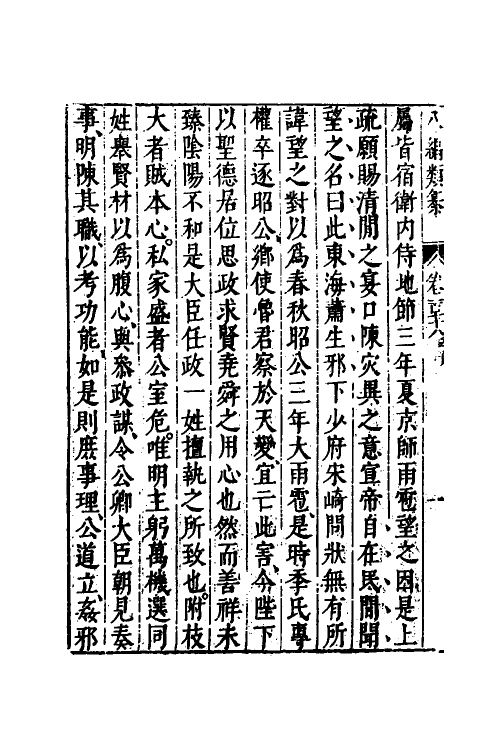 八編類纂 卷
屬皆宿衛內侍地節三年夏京師雨雹望之因是上
疏願賜清閒之宴口陳灾異之意宣帝自在民間聞
望之名曰此東海蕭生邪下少府宋畸問狀無有所
諱望之對以為春秋昭公三年大雨雹是時季氏專
權卒逐昭公鄉使魯君察於天變宜亡此害今陛下
以聖德居位思政求賢堯舜之用心也然而善祥未
臻陰陽不和是大臣任政一姓擅執之所致也附枝
大者賊本心私家盛者公室危唯明主躬萬機選同
姓舉賢材以為腹心與叅政謀令公卿大臣朝見奏
事明陳其職以考功能如是則庶事理公道立姦邪